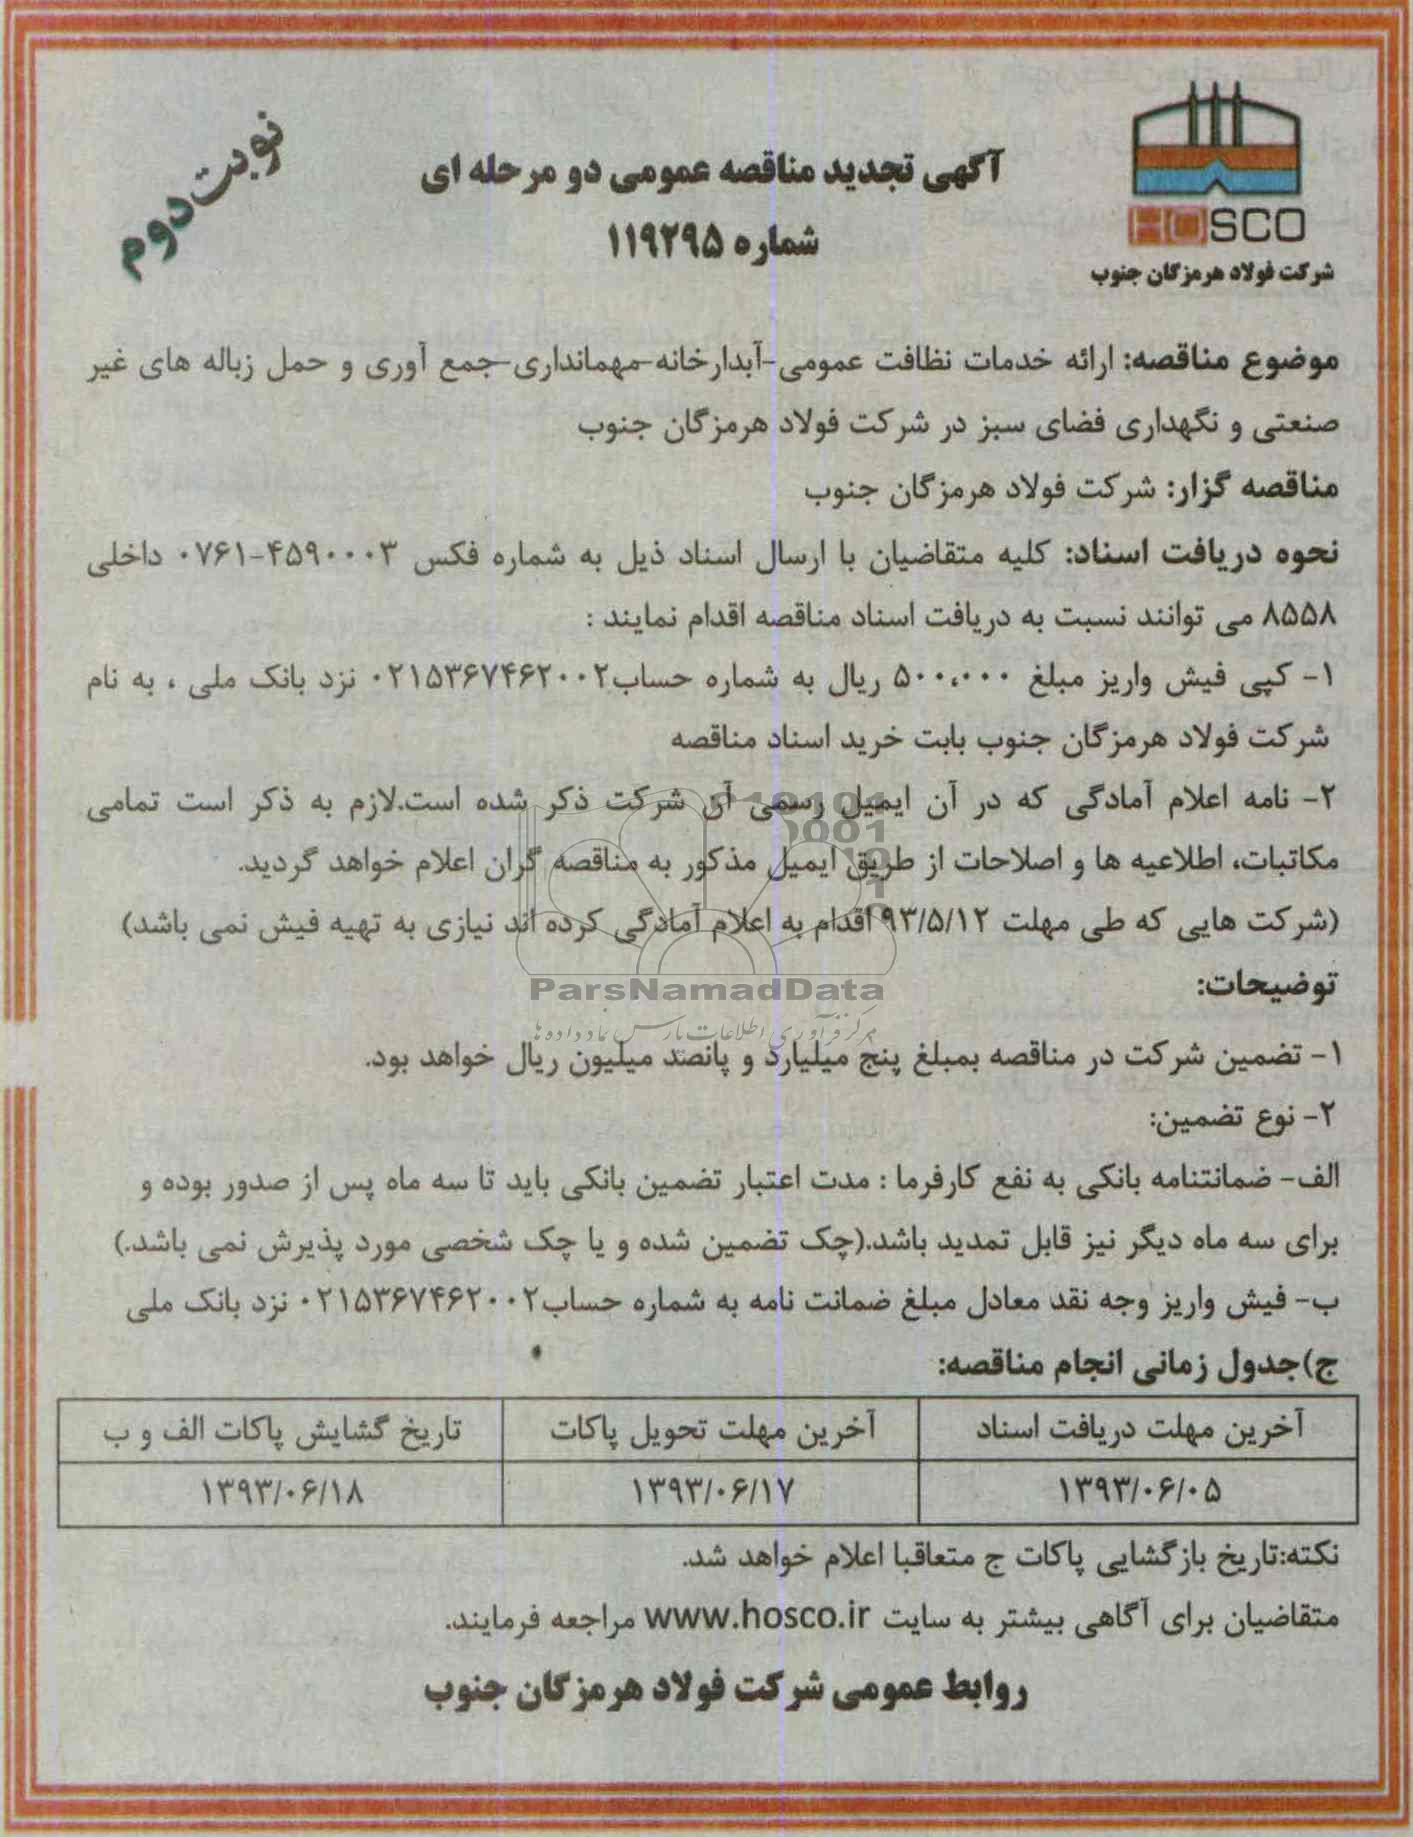 نوبت دوم
آگهی تجدید مناقصه عمومی دو مرحله ای
شماره ۱۱۹۲۹۵
HOSCO
شرکت فولاد هرمزگان جنوب
موضوع مناقصه: ارائه خدمات نظافت عمومی-آبدارخانه-مهمانداری-جمع آوری و حمل زباله های غیر
صنعتی و نگهداری فضای سبز در شرکت فولاد هرمزگان جنوب
مناقصه گزار: شرکت فولاد هرمزگان جنوب
نحوه دریافت اسناد: کلیه متقاضیان با ارسال اسناد ذیل به شماره فکس ۴۵۹۰۰۰۳-۰۷۶۱ داخلی
۸۵۵۸ می توانند نسبت به دریافت اسناد مناقصه اقدام نمایند :
۱- کپی فیش واریز مبلغ ۵۰۰،۰۰۰ ریال به شماره حساب۰۲۱۵۳۶۷۴۶۲۰۰۲ نزد بانک ملی ، به نام
شرکت فولاد هرمزگان جنوب بابت خرید اسناد مناقصه
۲- نامه اعلام آمادگی که در آن ایمیل رسمی آن شرکت ذکر شده است.لازم به ذکر است تمامی
مکاتبات، اطلاعیه ها و اصلاحات از طریق ایمیل مذکور به مناقصه گران اعلام خواهد گردید.
(شرکت هایی که طی مهلت ۹۳/۵/۱۲ اقدام به اعلام آمادگی کرده اند نیازی به تهیه فیش نمی باشد)
توضیحات:
ParsNamadData
مرکز فرآوری اطلاعات پارس نماد داده ها
۱- تضمین شرکت در مناقصه بمبلغ پنج میلیارد و پانصد میلیون ریال خواهد بود.
۲- نوع تضمین:
الف- ضمانتنامه بانکی به نفع کارفرما : مدت اعتبار تضمین بانکی باید تا سه ماه پس از صدور بوده و
برای سه ماه دیگر نیز قابل تمدید باشد.(چک تضمین شده و یا چک شخصی مورد پذیرش نمی باشد.)
ب- فیش واریز وجه نقد معادل مبلغ ضمانت نامه به شماره حساب۰۲۱۵۳۶۷۴۶۲۰۰۲ نزد بانک ملی
ج)جدول زمانی انجام مناقصه:
آخرین مهلت دریافت اسناد آخرین مهلت تحویل پاکات تاریخ گشایش پاکات الف و ب
۱۳۹۳/۰۶/۰۵ ۱۳۹۳/۰۶/۱۷ ۱۳۹۳/۰۶/۱۸
نکته:تاریخ بازگشایی پاکات ج متعاقبا اعلام خواهد شد.
متقاضیان برای آگاهی بیشتر به سایت www.hosco.ir مراجعه فرمایند.
روابط عمومی شرکت فولاد هرمزگان جنوب